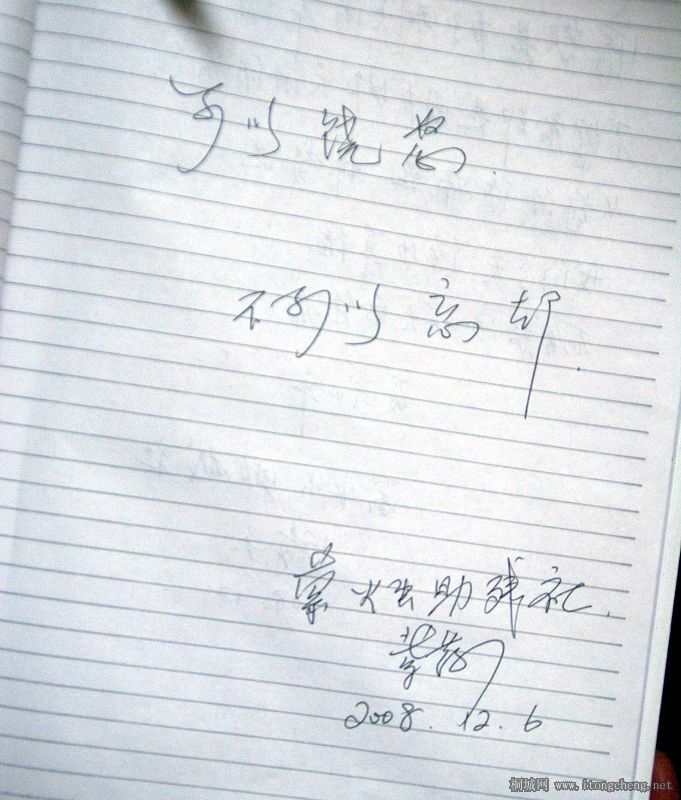 可以饶恕.
不可以忘却.
萤火虫助残社.
2008.12.6
桐城网 www.itongcheng.net